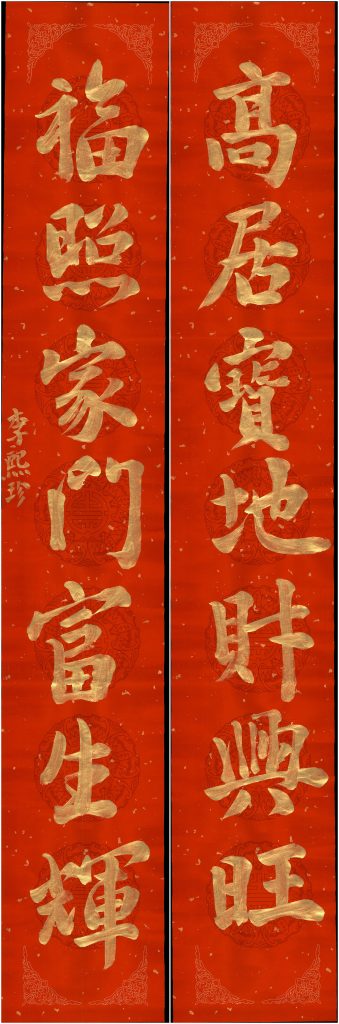 高居寶地財興旺
福照家門富生輝
李熙珍